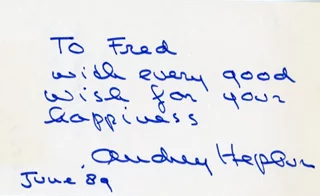 To Fred
with every good
wish for your
happiness
Audrey Hepburn
June '89